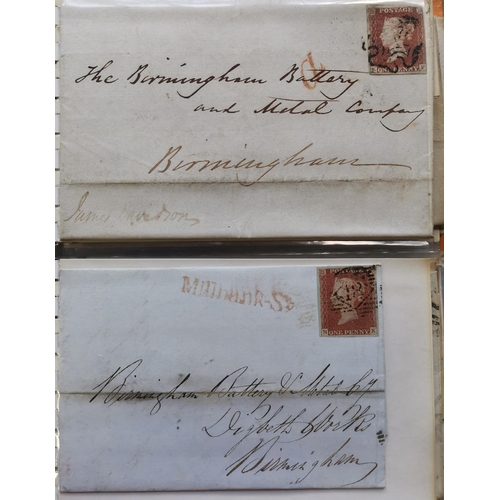 POSTAGE
ONE PENNY
The Birmingham Battery
and Metal Company
Birmingham
James Davidson
Millbank-St
POSTAGE
ONE PENNY
Birmingham Battery & Metal Co
Digbeth Works
Birmingham